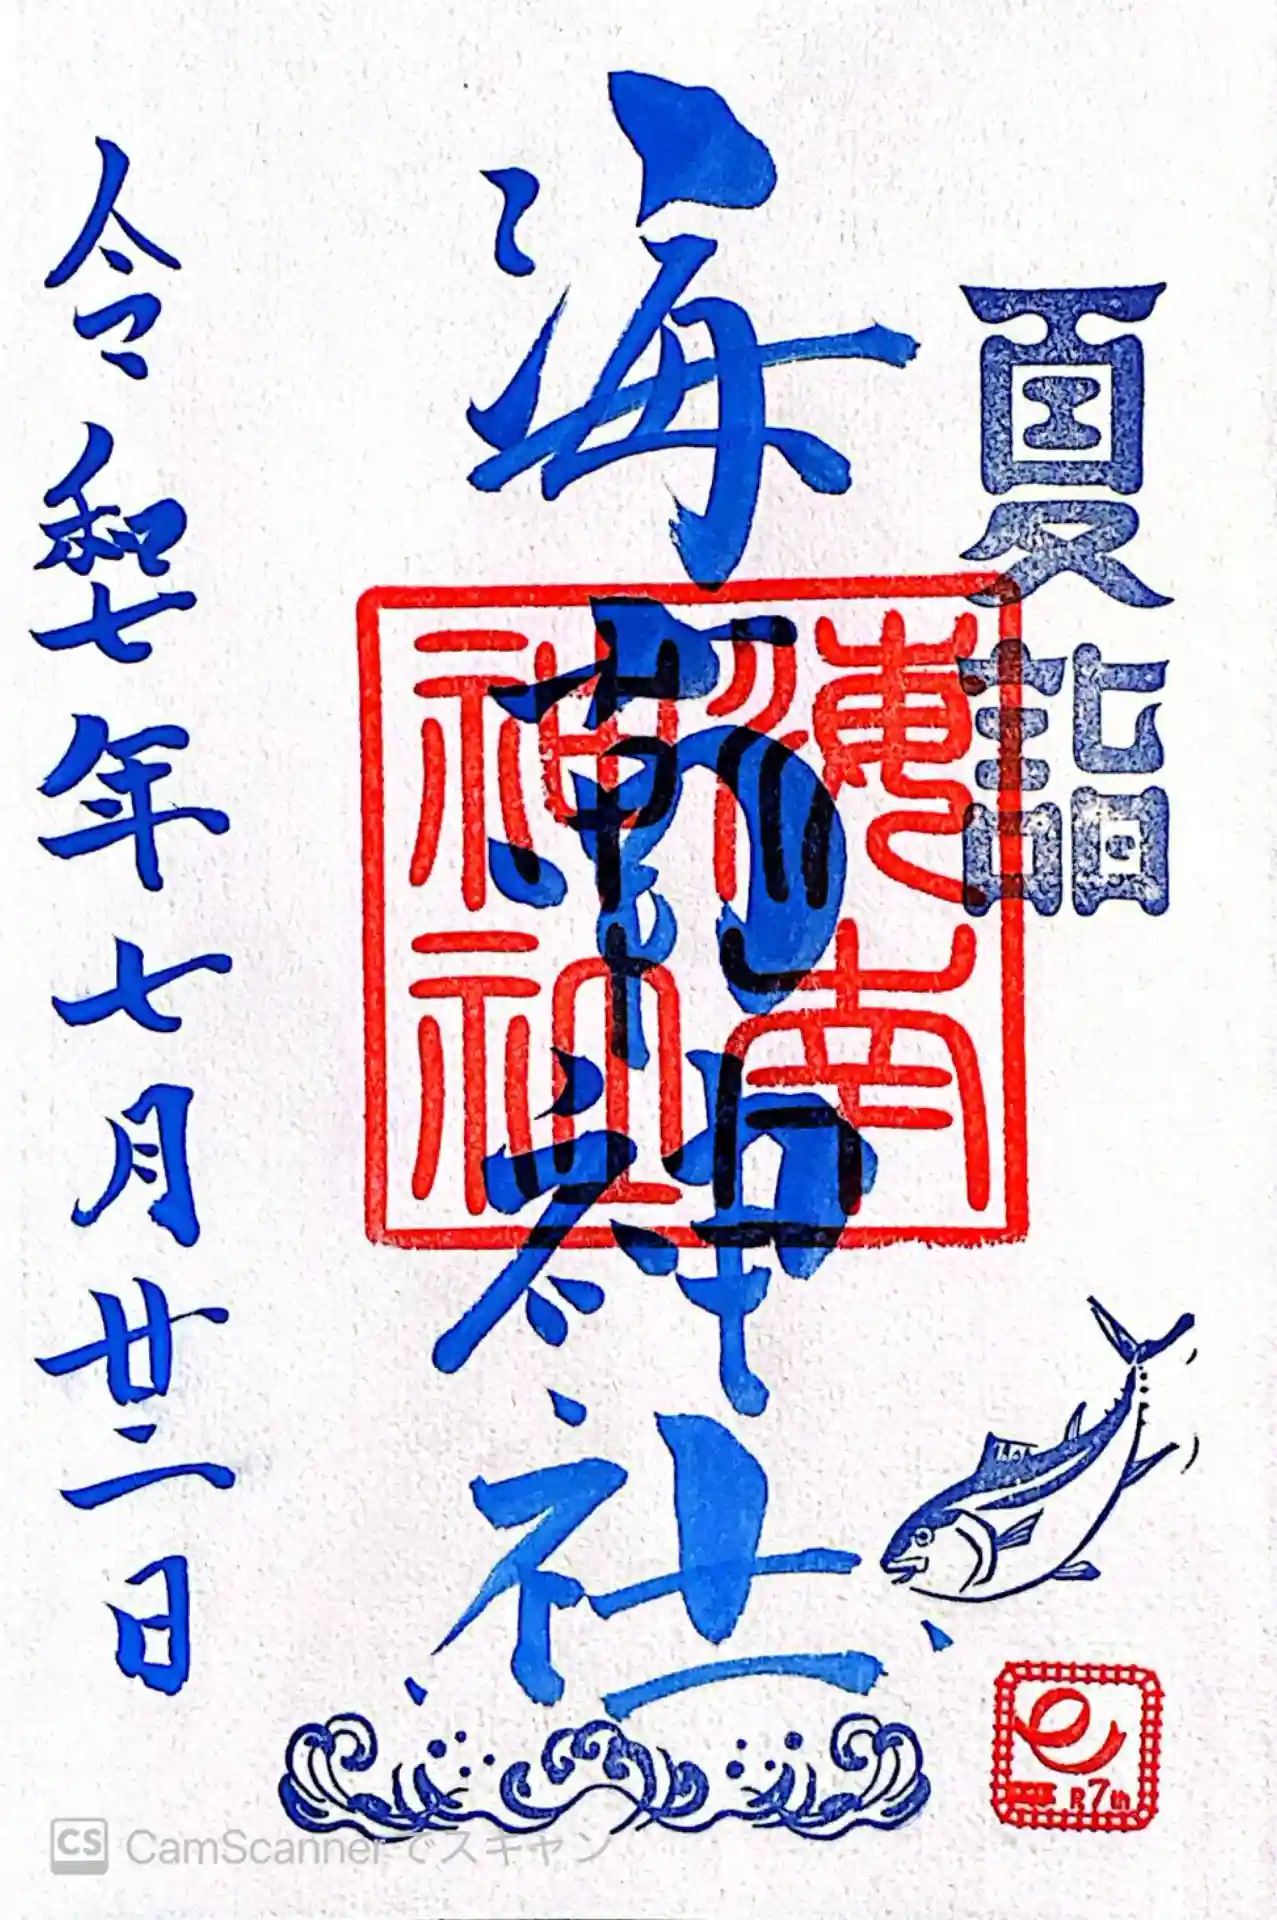 夏詣
海南神社
海南
神社
令和七年七月廿二日
R7th
CS CamScannerでスキャン